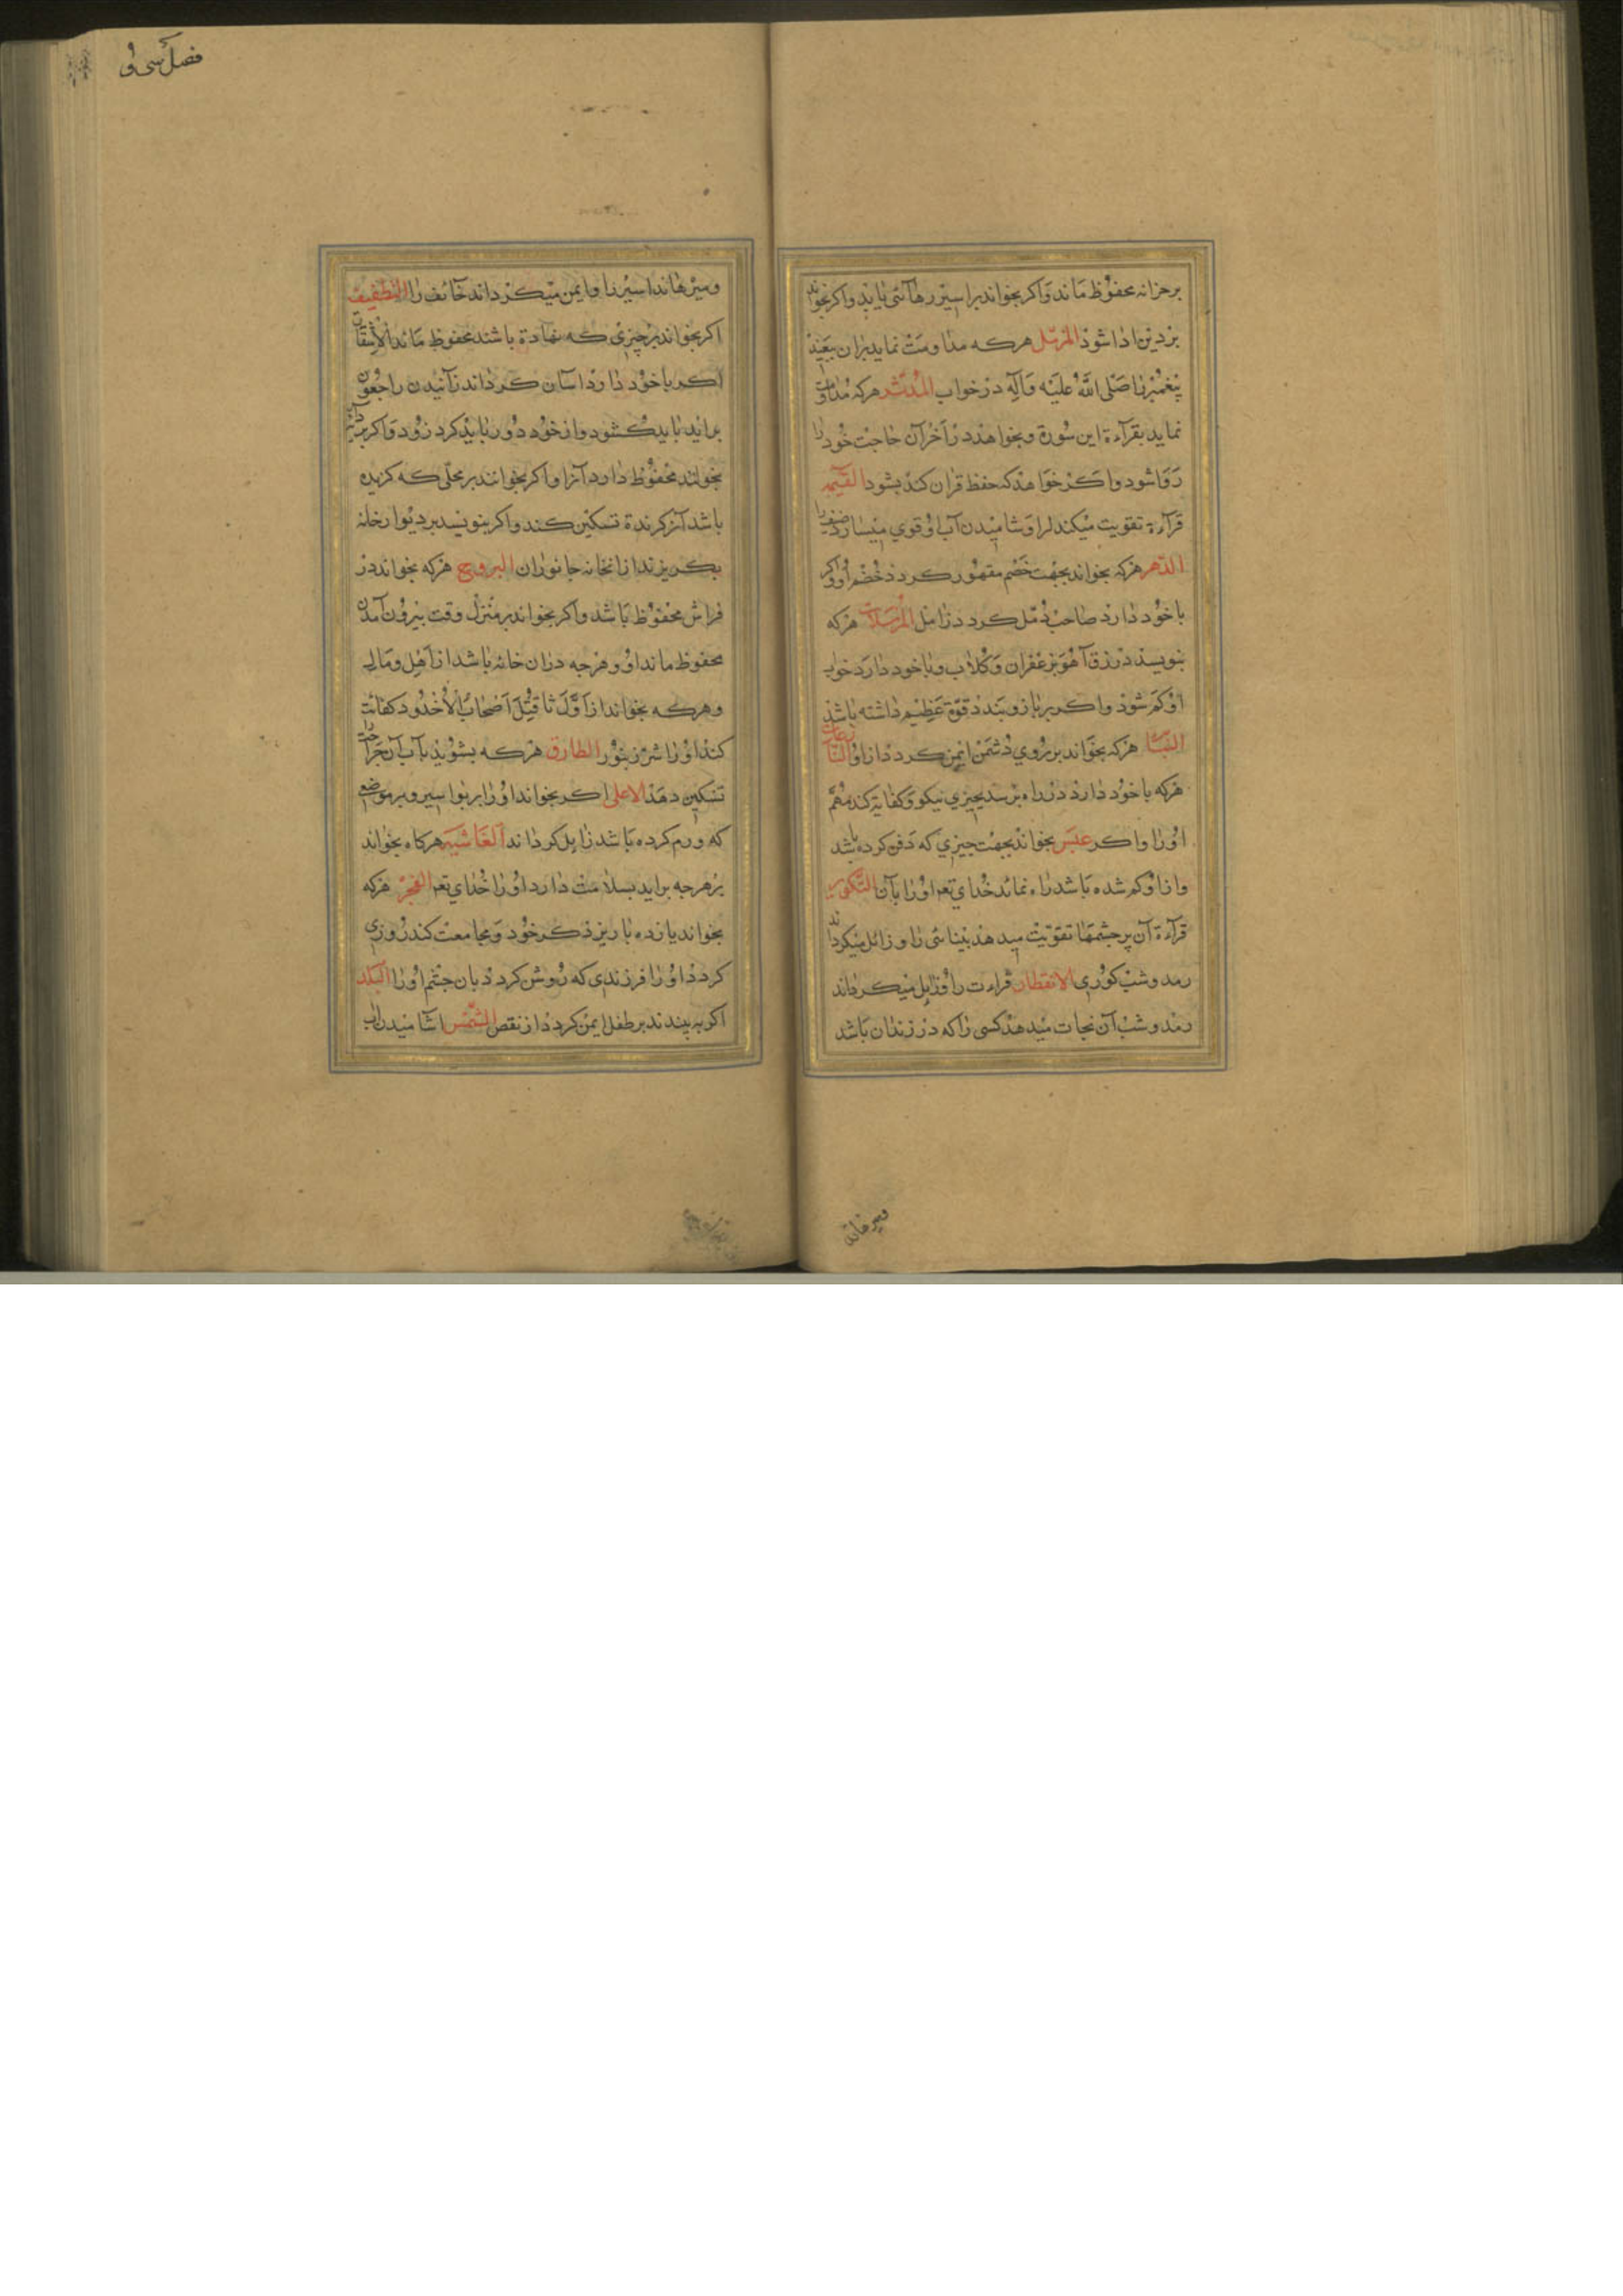 برخزانه محفوظ ماند واکر بخواند براسیر رهآئی یابد واکر بخواند
بردین ادا شود المزمّل هرکه مداومت نماید بران ببیند
پیغمبر را صَلَّی اللهُ علیه وَآلِه در خواب المدّثر هرکه مداومت
نماید بقرآءة این سورة وبخواهد در آخر آن حاجت خود را
رَوَا شود واکر خواهد که حفظ قران کند بشود القیمه
قرآءة تقویت میکند اورا وشامیدن آب او قوی میسازد ضعف را
الدّهر هرکه بخواند بجهت خصم مقهور کردد خصم او واکر
باخود دارد صاحب دمّل کردد زامل المرسلات هرکه
بنویسد در رق آهو بزعفران وکلاب وباخود دارد خواب
او کم شود واکر بربازو بندد قوّة عظیم داشته باشد
النّبأ هرکه بخواند برروی دشمن ایمن کردد از او النّازعات
هرکه باخود دارد در راه برسد بچیزی نیکو وکفایة کند مهمّ
اورا واکر عبس بخواند بجهت چیزی که دفن کرده باشد
وازاو کم شده باشد راه نماید خدای تعم اورا بآن التّکویر
قرآءة آن برچشمها تقویت میدهد بینائی را وزائل میکرداند
رمد وشب کوری الانفطار قراءت او زایل میکرداند
رمد وشب آن نجات میدهد کسی را که در زندان باشد
ومیرهاند اسیر را وایمن میکرداند خائف را التطفیف
اکر بخواند برچیزی که نهاده باشند محفوظ ماند الانشقاق
اکر باخود دارد آسان کرداند زآئیدن را چون
برآید باید کشود وازخود دور باید کرد زود واکر بر دآبّه
بخوانند محفوظ دارد آنرا واکر بخوانند بر محلّی که کزیده
باشد آنرا کزنده تسکین کند واکر بنویسد بر دیوار خانه
بکریزند ازان خانه جانوران البروج هرکه بخواند در
فراش محفوظ باشد واکر بخواند بر منزل وقت بیرون آمدن
محفوظ ماند او وهرچه دران خانه باشد از اهل ومال
وهرکه بخواند از اوّل تا قُتِلَ اَصْحَابُ الْاُخْدُود کفایت
کند اورا شرّ زنبور الطارق هرکه بشوید بآب آن جراحت
تسکین دهد الاعلی اکر بخواند اورا بربواسیر وبرموضعی
که ورم کرده باشد زایل کرداند الغاشیه هرکاه بخواند
برهرچه براید بسلامت دارد اورا خدای تعم الفجر هرکه
بخواند یازده بار بر ذکر خود ومجامعت کند روزی
کردد اورا فرزندی که روشن کردد بان چشم اورا البلد
اکر به بندند بر طفل ایمن کردد از نقص الشّمس آشامیدن آب
فصل سی و
ومیرهاند